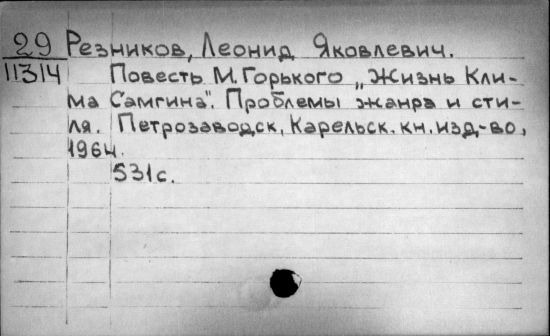 29 Резников, Леонид Яковлевич.
11314 Повесть М. Горького „Жизнь Кли-
ма Самгина". Проблемы жанра и сти-
ля. Петрозаводск, Карельск. кн. изд-во,
1964.
531с.